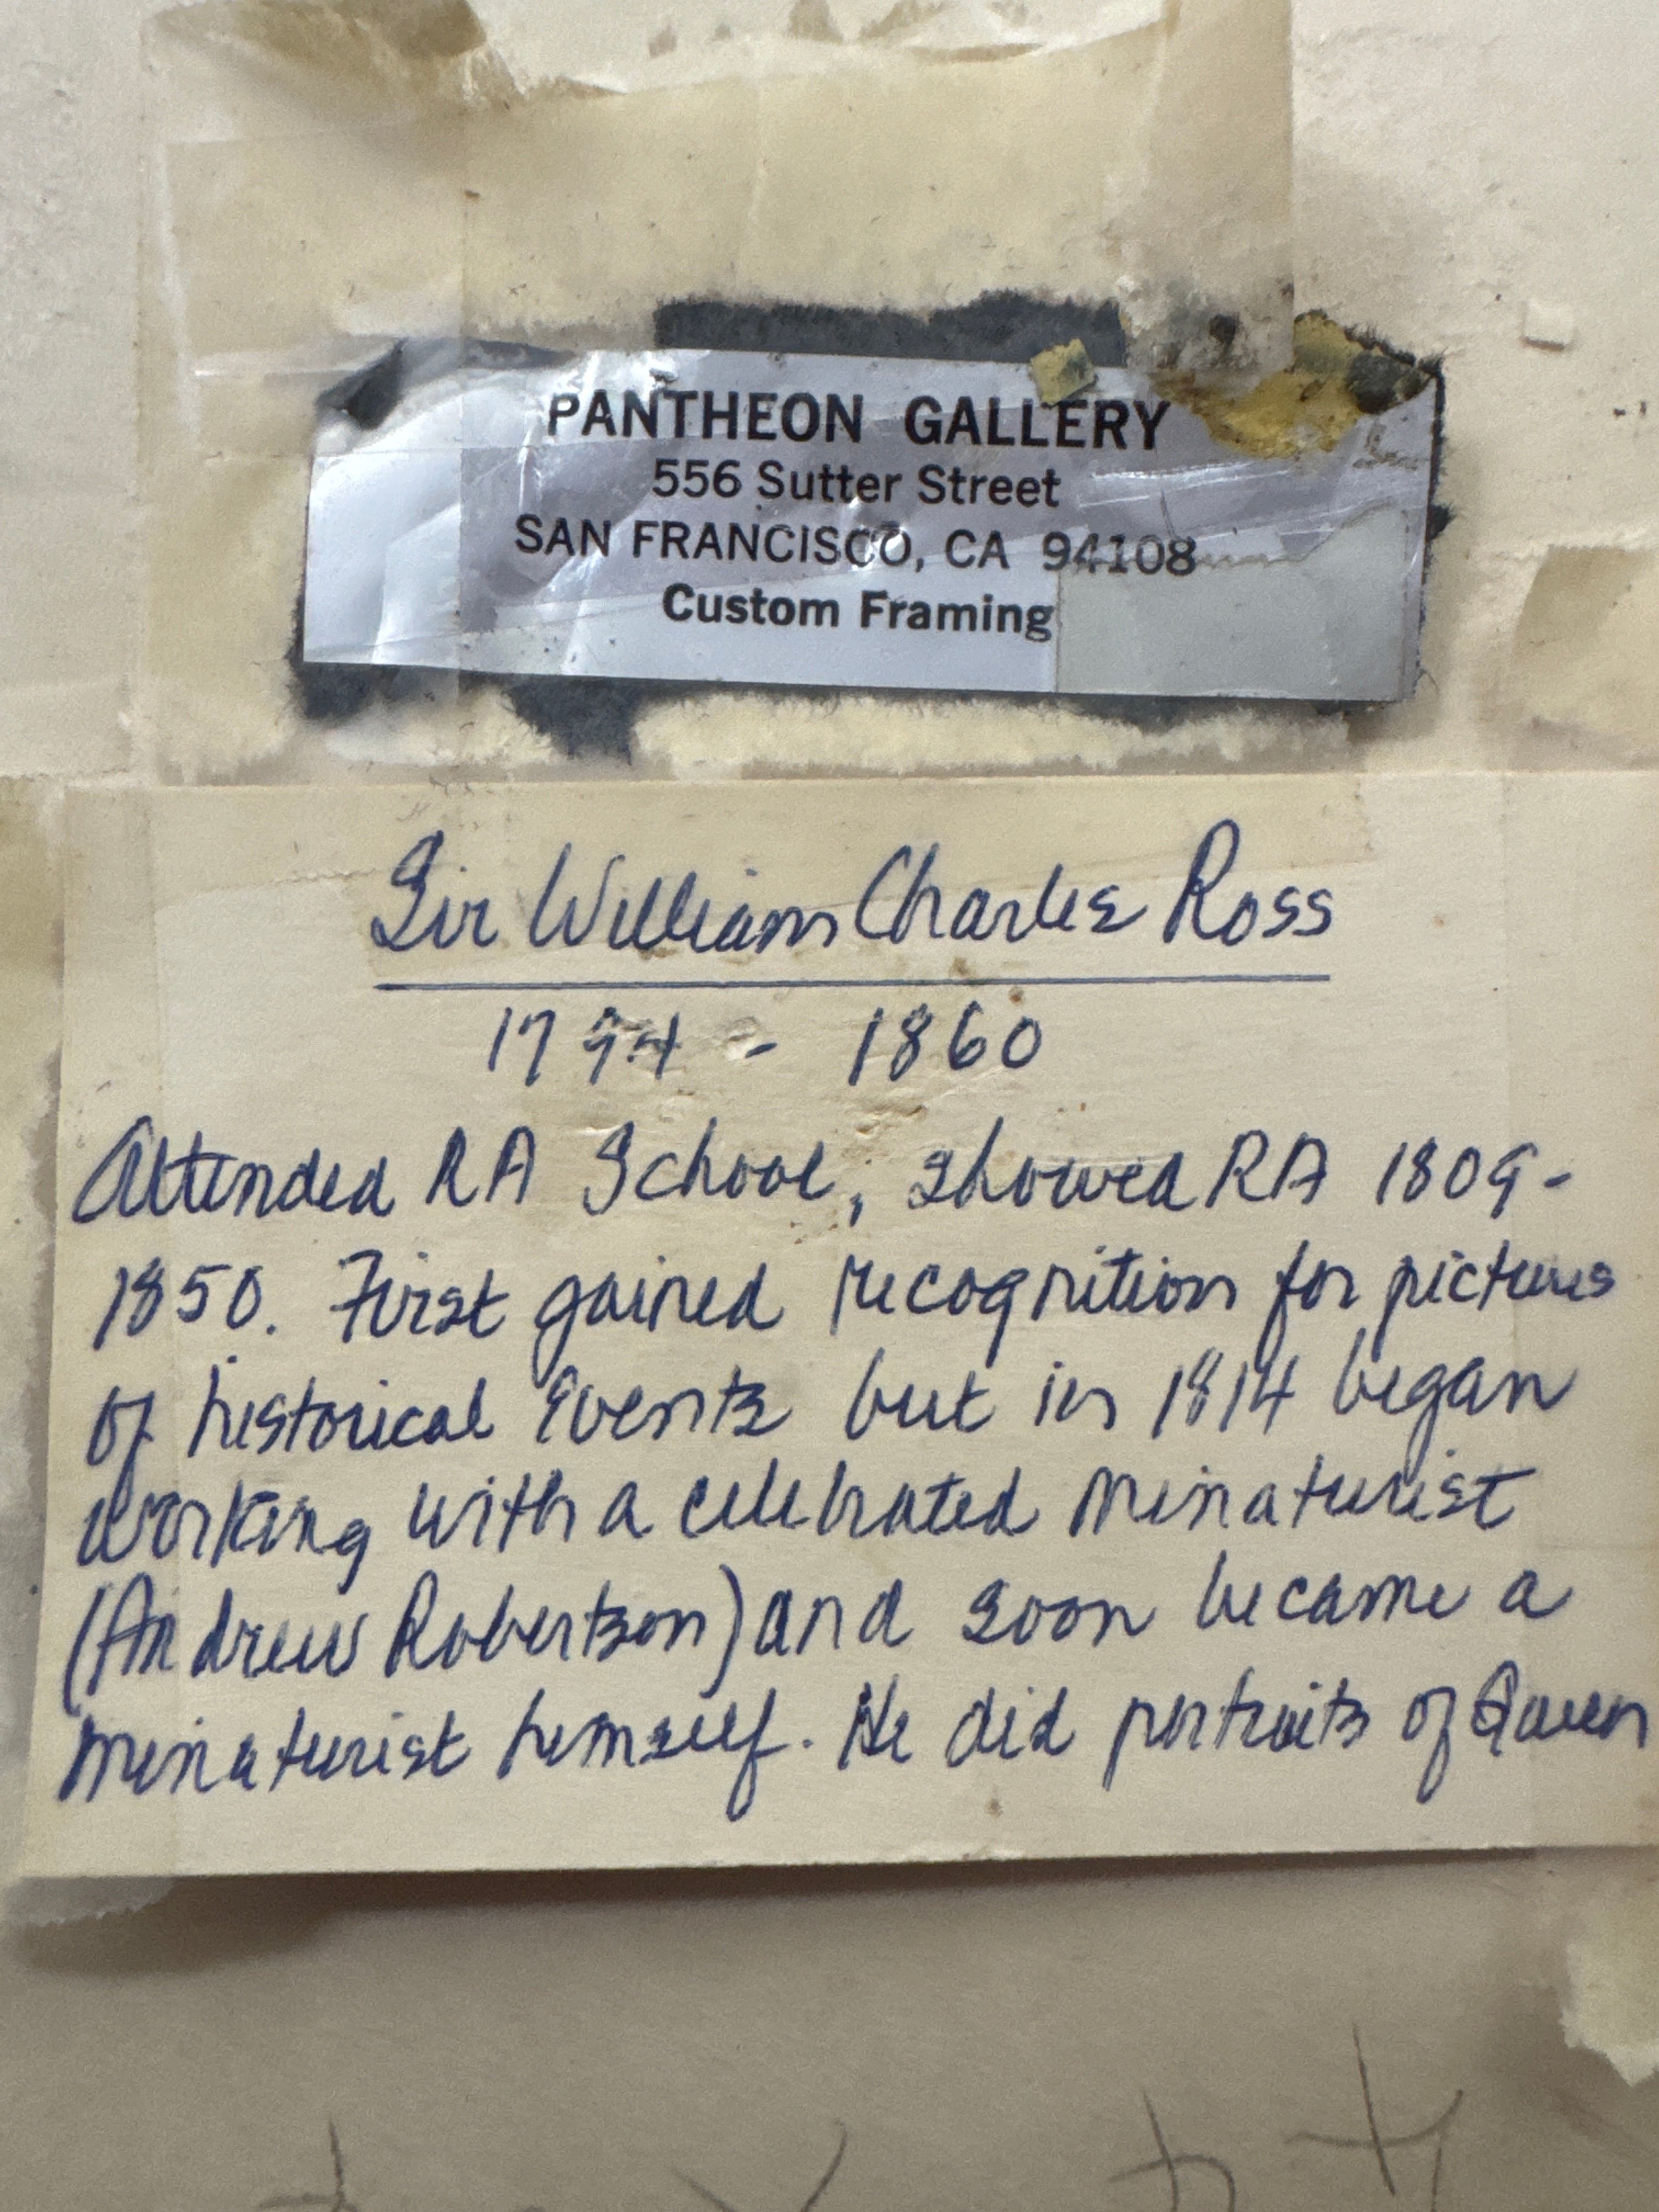 PANTHEON GALLERY
556 Sutter Street
SAN FRANCISCO, CA 94108
Custom Framing
Sir William Charles Ross
1794 - 1860
Attended RA School, showed RA 1809-
1850. First gained recognition for pictures
of historical Events but in 1814 began
working with a celebrated minaturist
(Andrew Robertson) and soon became a
minaturist himself. He did portraits of Queen